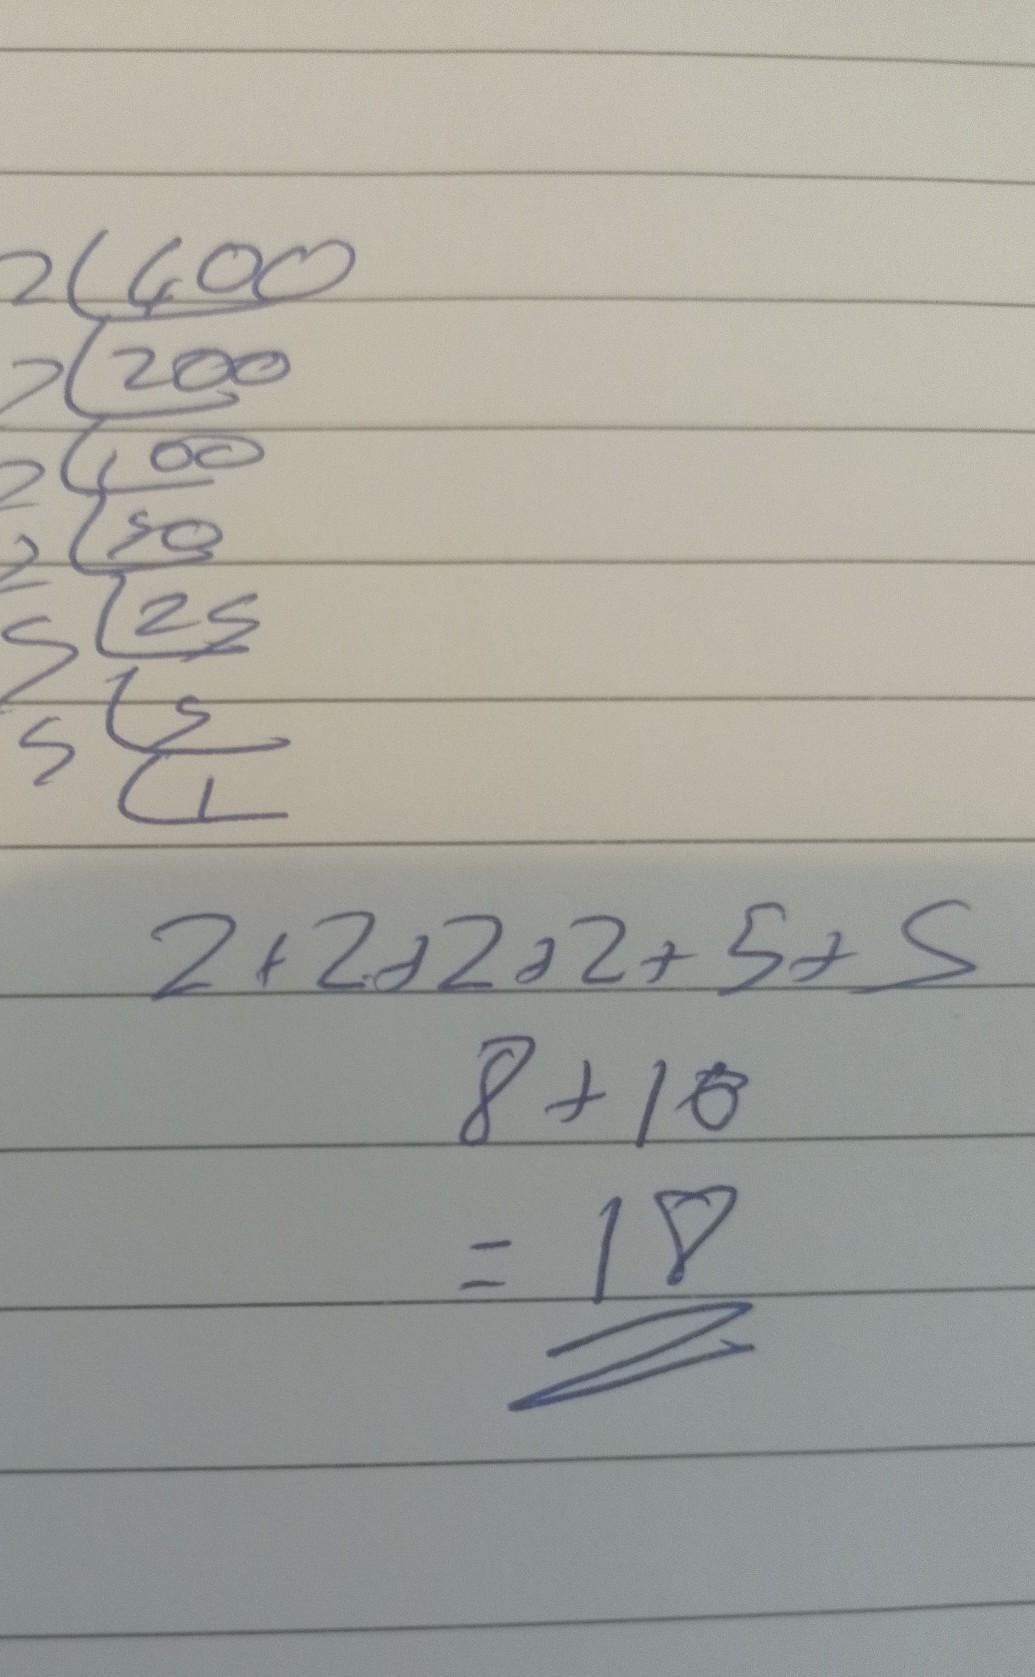 2 400
2 200
2 100
2 50
5 25
5 5
1
2+2+2+2+5+5
8+10
= 18